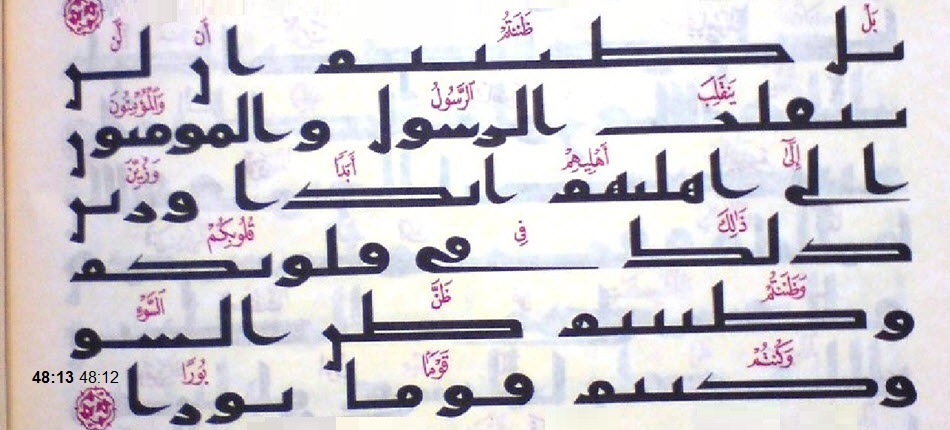 بَلْ ظَنَنتُمْ أَن لَّن
بل ظننتم ان لن
يَنقَلِبَ ٱلرَّسُولُ وَٱلْمُؤْمِنُونَ
ينقلب الرسول والمومنون
إِلَىٰٓ أَهْلِيهِمْ أَبَدًا وَزُيِّنَ
الى اهليهم ابدا وزين
ذَٰلِكَ فِى قُلُوبِكُمْ
ذلك فى قلوبكم
وَظَنَنتُمْ ظَنَّ ٱلسَّوْءِ
وظننتم ظن السو
وَكُنتُمْ قَوْمًا بُورًا
وكنتم قوما بورا
48:13 48:12